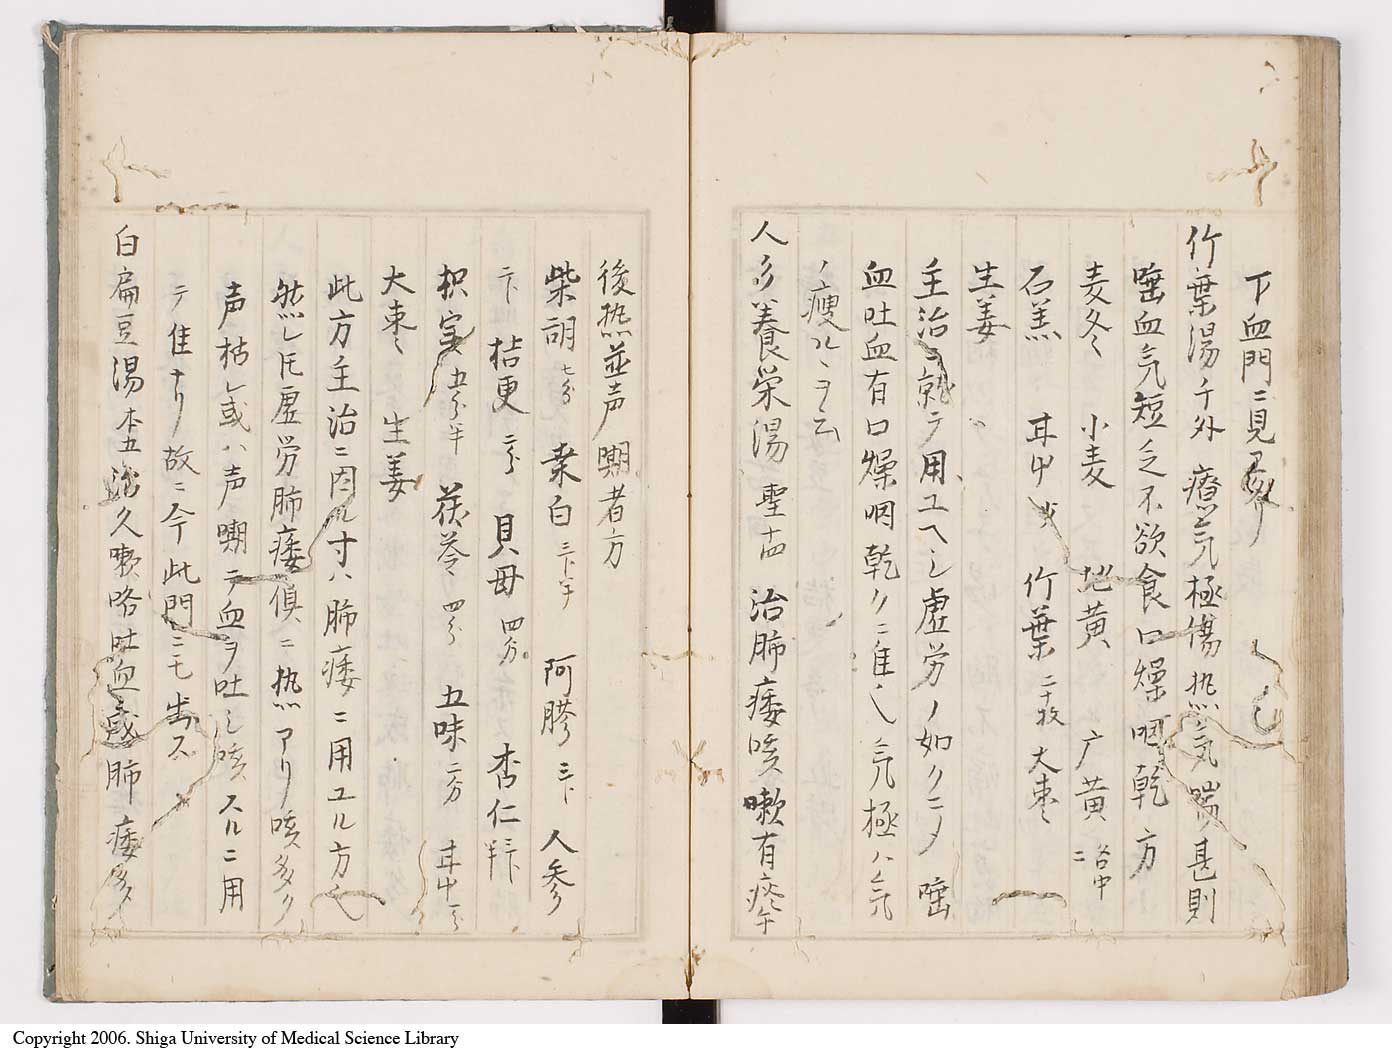 下血門ニ見
竹葉湯千外療气極傷热气喘甚則
唾血气短乏不欲食口燥咽乾方
麦冬 小麦 地黄 广黄
石羔 耳中 竹葉二十枚 大枣
生姜
主治ニ就テ用ユヘシ虚労ノ如クニメ唾
血吐血有口燥咽乾クニ隹へ气極ハ气
ノ瘦ルヽヲ云
人参養栄湯 聖十四 治肺痿咳嗽有痰午
後热並声嘶者方
柴胡七分 桑白三卜半 阿膠三卜 人参
二卜 桔更二分 貝母四分 杏仁
枳实五分半 茯苓四分 五味二分
大枣 生姜
此方主治ニ因ル寸ハ肺痿ニ用ユル方也
然レ𪜈虚労肺痿俱ニ热アリ咳多ク
声枯レ或ハ声嘶テ血ヲ吐シ咳スルニ用
テ隹ナリ故ニ今此門ニモ出ス
白扁豆湯本五治久嗽咯吐血成肺痿多
Copyright 2006. Shiga University of Medical Science Library